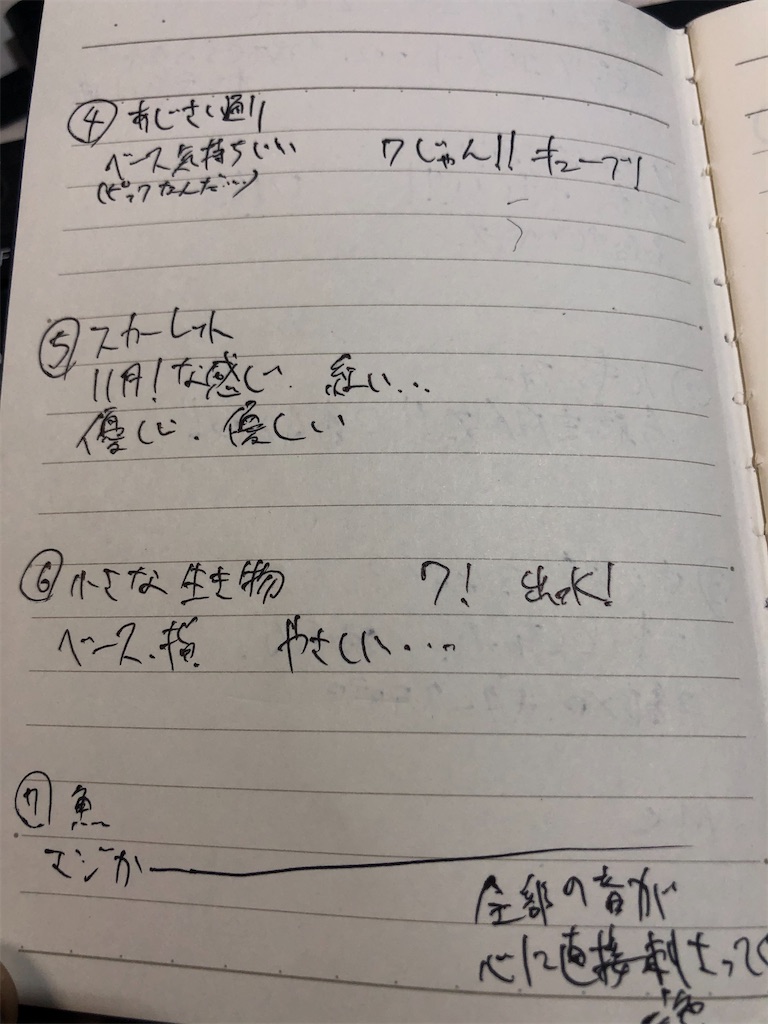 ④ あじさい通り
ベース気持ちいい クじゃん!! キューブ!
(ピックなんだ…)
⑤ スカーレット
11月!な感じ. 紅い...
優しい. 優しい
⑥ 小さな生き物 ク!
ベース.指 やさしい...
⑦ 魚
マジかー
全部の音が
心に直接刺さって